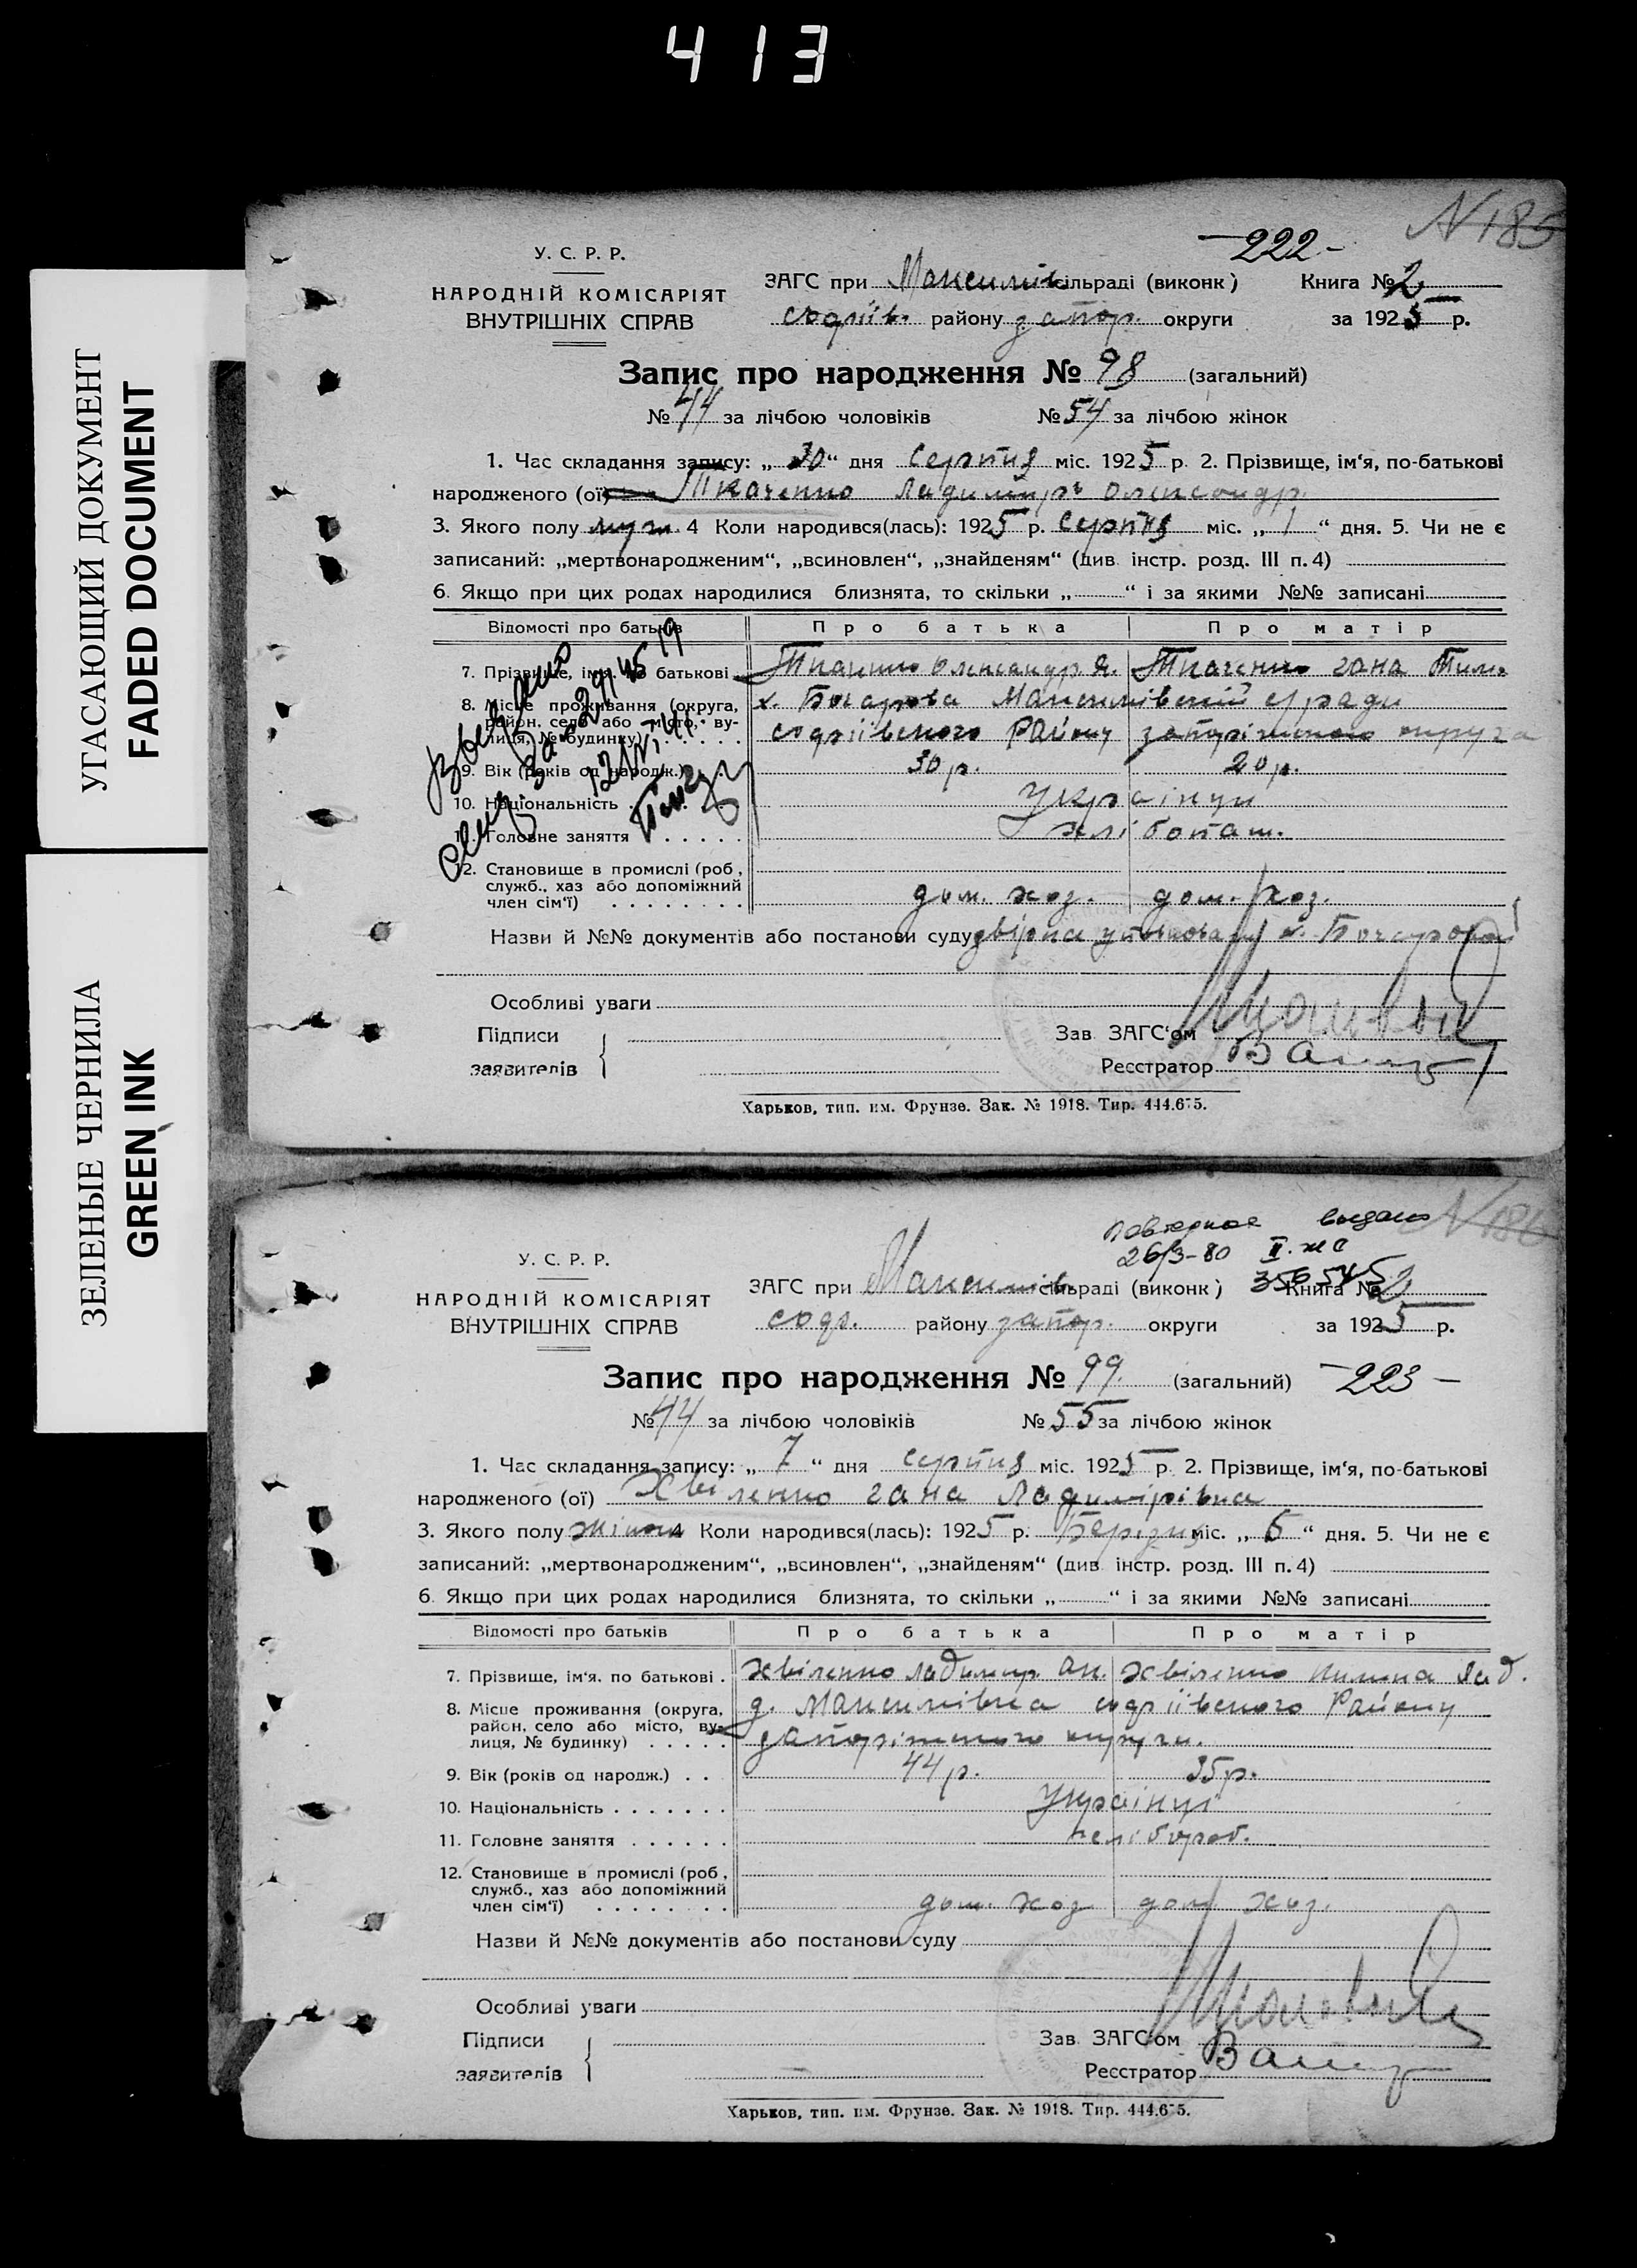 413
УГАСАЮЩИЙ ДОКУМЕНТ
FADED DOCUMENT
ЗЕЛЕНЫЕ ЧЕРНИЛА
GREEN INK
N 185
-222-
У. С. Р. Р.
НАРОДНІЙ КОМІСАРІЯТ
ВНУТРІШНІХ СПРАВ
ЗАГС при Максимів сільраді (виконк) Книга № 2
софіїв. району запор. округи за 1925 р.
Запис про народження № 98 (загальний)
№ 44 за лічбою чоловіків № 54 за лічбою жінок
1. Час складання запису: „30“ дня Серпня міс. 1925 р. 2. Прізвище, ім‘я, по-батькові
народженого (ої) Ткаченко Ладимійръ Олександр.
3. Якого полу муж. 4 Коли народився(лась): 1925 р. Серпня міс. „1“ дня. 5. Чи не є
записаний: „мертвонародженим“, „всиновлен“, „знайденям“ (див. інстр. розд. III п. 4)
6. Якщо при цих родах народилися близнята, то скільки „ “ і за якими №№ записані
Відомості про батьків Про батька Про матір
7. Прізвище, ім‘я. по батькові Ткаченко Олександр Я. Ткаченко гана Тим.
8. Місце проживання (округа, х. Бочарова Максимівській с/ради
район, село або місто, вулиця, № будинку) софіївского Району запоріжского округа
9. Вік (років од народж.) 30 р. 20 р.
10. Національність Українци
11. Головне заняття
12. Становище в промислі (роб., служб., хаз або допоміжний член сім‘ї) дом. хоз. дом. хоз.
Назви й №№ документів або постанови суду х. Бочарової
Особливі уваги
Підписи заявителів
Зав. ЗАГС‘ом
Реєстратор
Харьков, тип. им. Фрунзе. Зак. № 1918. Тир. 444.675.
Повторное выдано N 186
26/3-80 II. ЖС
356545
У. С. Р. Р.
НАРОДНІЙ КОМІСАРІЯТ
ВНУТРІШНІХ СПРАВ
ЗАГС при Максимів сільраді (виконк) Книга № 2
софі. району запор. округи за 1925 р.
Запис про народження № 99 (загальний) -223-
№ 44 за лічбою чоловіків № 55 за лічбою жінок
1. Час складання запису: „7“ дня Серпня міс. 1925 р. 2. Прізвище, ім‘я, по-батькові
народженого (ої) Хвіленко гана Ладимірівна
3. Якого полу жіноч 4 Коли народився(лась): 1925 р. Березня міс. „6“ дня. 5. Чи не є
записаний: „мертвонародженим“, „всиновлен“, „знайденям“ (див. інстр. розд. III п. 4)
6. Якщо при цих родах народилися близнята, то скільки „ “ і за якими №№ записані
Відомості про батьків Про батька Про матір
7. Прізвище, ім‘я. по батькові Хвіленко Ладимир Ан. Хвіленко Килина Лад.
8. Місце проживання (округа, д. Максимівка софіївского Району
район, село або місто, вулиця, № будинку) запоріжского округи.
9. Вік (років од народж.) 44 р. 35 р.
10. Національність Українці
11. Головне заняття хлібороб.
12. Становище в промислі (роб., служб., хаз або допоміжний член сім‘ї) дом. хоз дом хоз.
Назви й №№ документів або постанови суду
Особливі уваги
Підписи заявителів
Зав. ЗАГС‘ом
Реєстратор
Харьков, тип. им. Фрунзе. Зак. № 1918. Тир. 444.675.